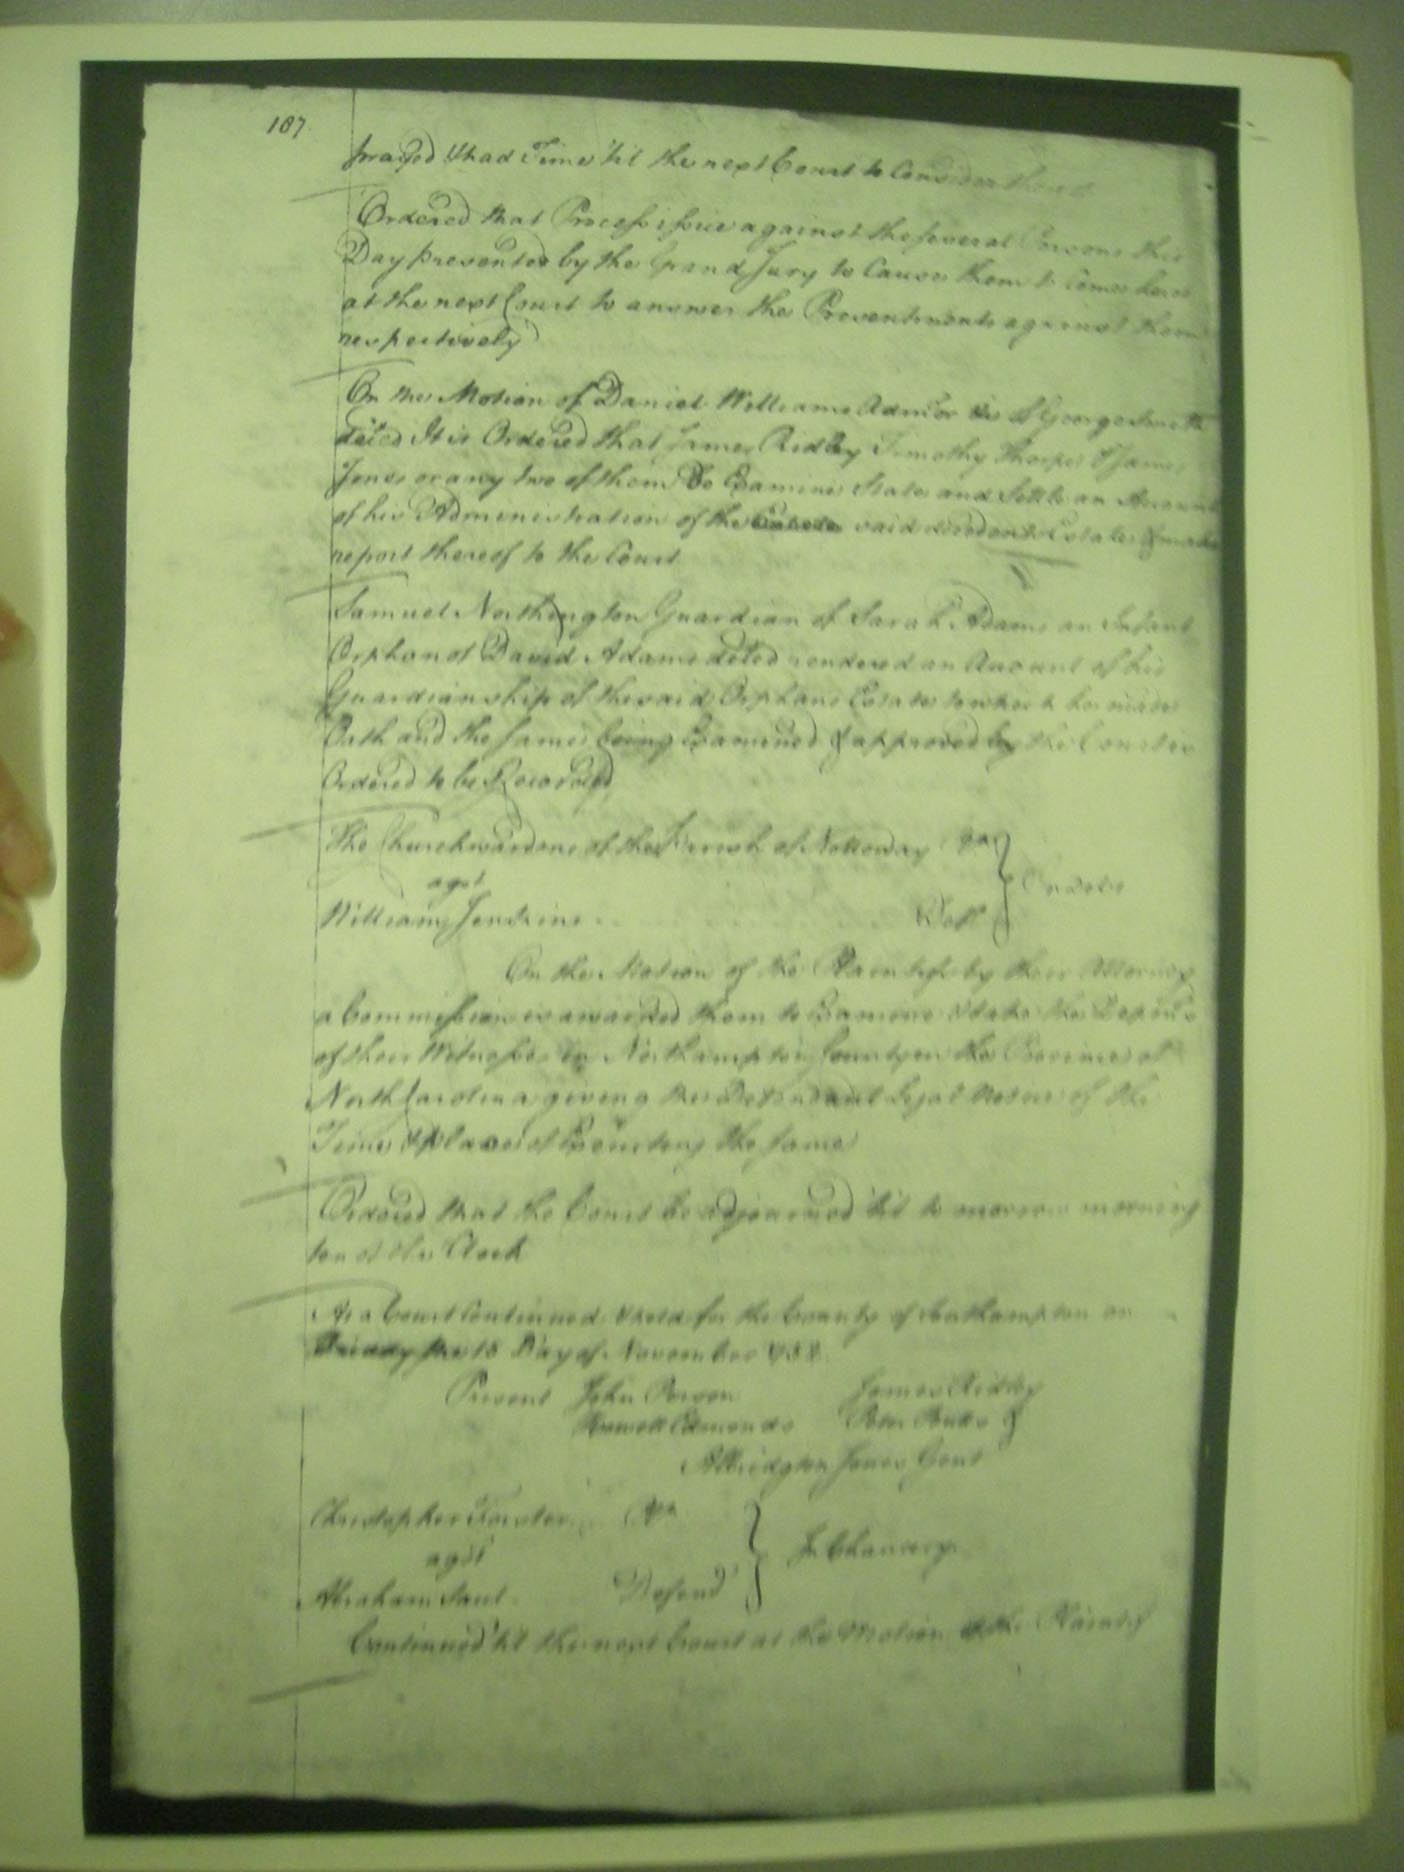 187
prayed & had Time 'til the next Court to Consider thereof
Ordered that Process issue against the several Persons this
Day presented by the Grand Jury to Cause them to Come here
at the next Court to answer the Presentments against them
respectively
On the Motion of Daniel Williams Admor &c of George Smith
deced It is Ordered that James Ridley Timothy Thorpe & James
Jones or any two of them Do Examine State and Settle an Account
of his Administration of the said decedents Estate & make
report thereof to the Court
Samuel Northington Guardian of Sarah Adams an Infant
Orphan of David Adams deced rendered an Account of his
Guardianship of the said Orphans Estate to which he made
Oath and the same being Examined & approved by the Court is
Ordered to be Recorded
The Churchwardens of the Parish of Nottoway
agst
William Jenkins Deft
On the Motion of the Plaintifs by their Attorney
a Commission is awarded them to Examine & take the
of their Witnesses in Northampton County in the Province of
North Carolina giving the Defendant Legal Notice of the
Time & place of Executing the same
Ordered that the Court be adjourned 'til to morrow morning
ten of the Clock
At a Court Continued & held for the County of Southampton on
the 10 Day of November
Present John Person James Ridley
Howell Edmunds Peter Butts &
Albridgton Jones Gent
Christopher
agst In Chancery
Abraham Defend
Continued 'til the next Court at the Motion of the Plaintif